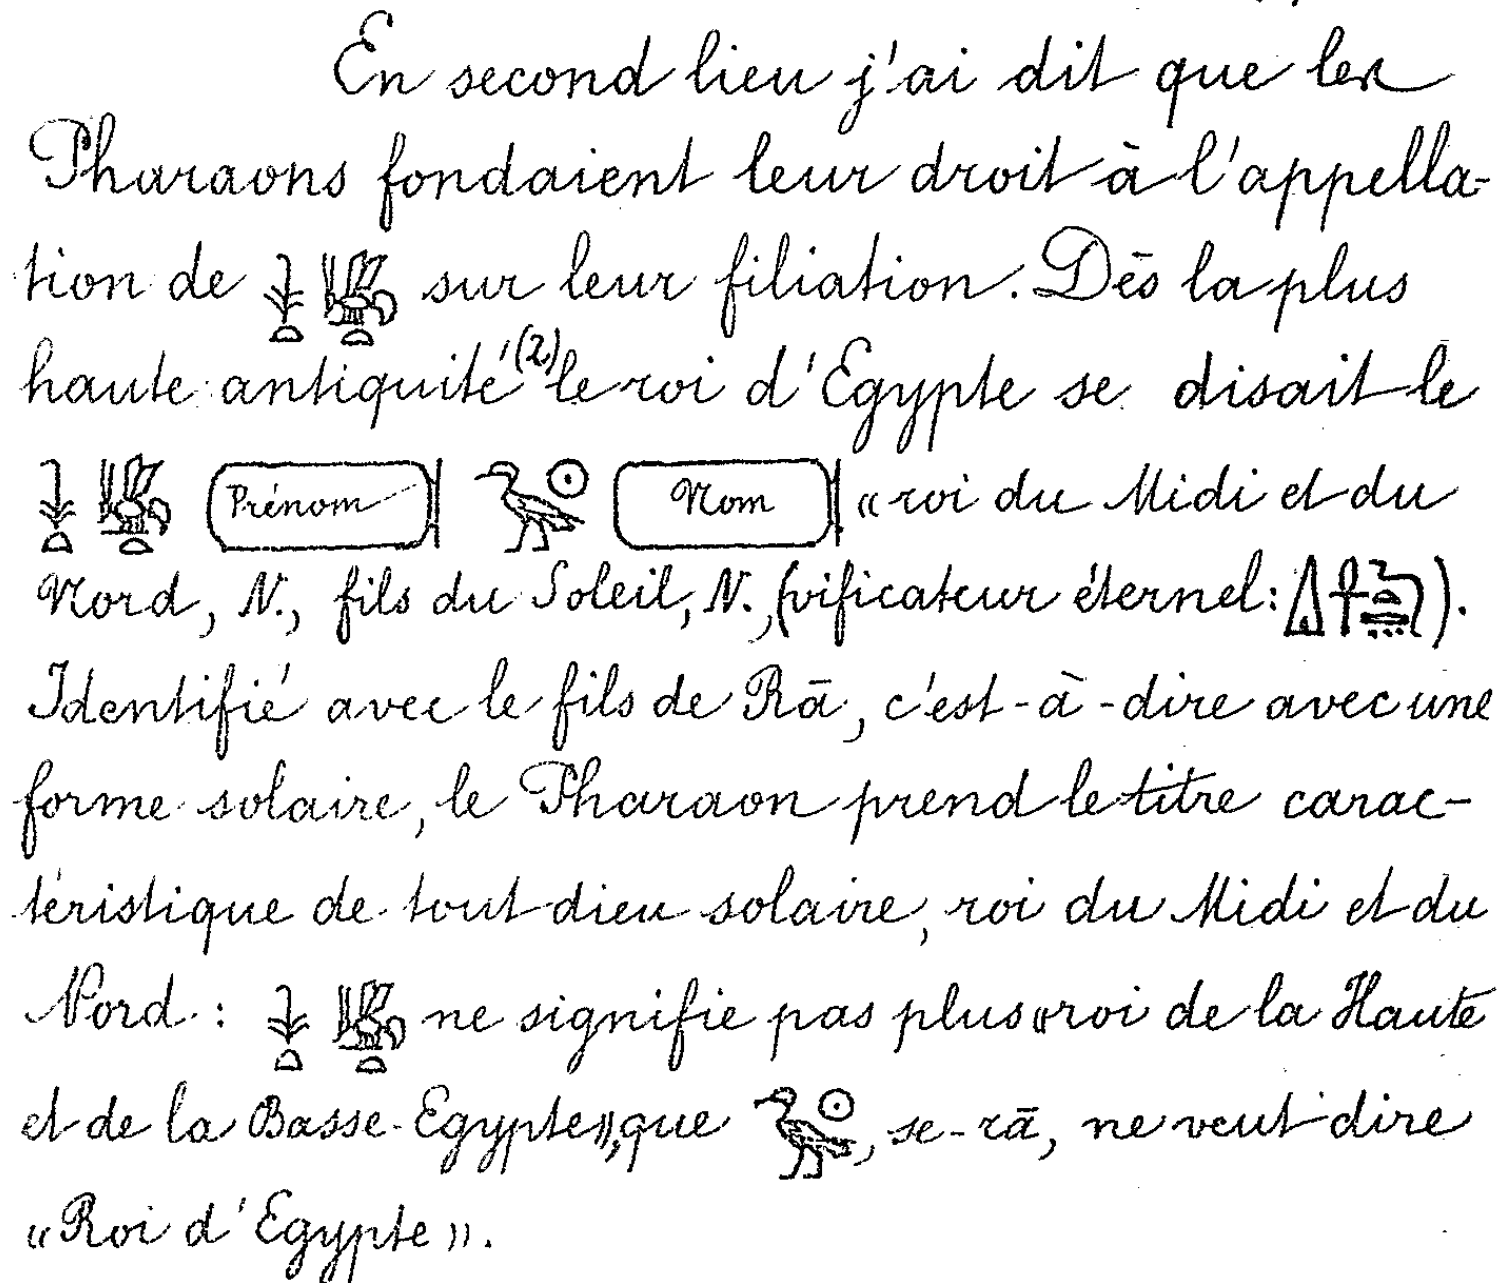 En second lieu j'ai dit que les
Pharaons fondaient leur droit à l'appella-
tion de 𓇓𓏏 𓆤𓏏 sur leur filiation. Dès la plus
haute antiquité (2) le roi d'Egypte se disait le
𓇓𓏏 𓆤𓏏 Prénom 𓅭𓇳 Nom « roi du Midi et du
Nord, N., fils du Soleil, N., (vificateur éternel: ).
Identifié avec le fils de Rā, c'est-à-dire avec une
forme solaire, le Pharaon prend le titre carac-
téristique de tout dieu solaire, roi du Midi et du
Nord : 𓇓𓏏 𓆤𓏏 ne signifie pas plus « roi de la Haute
et de la Basse-Egypte », que 𓅭𓇳, se-rā, ne veut dire
« Roi d'Egypte ».